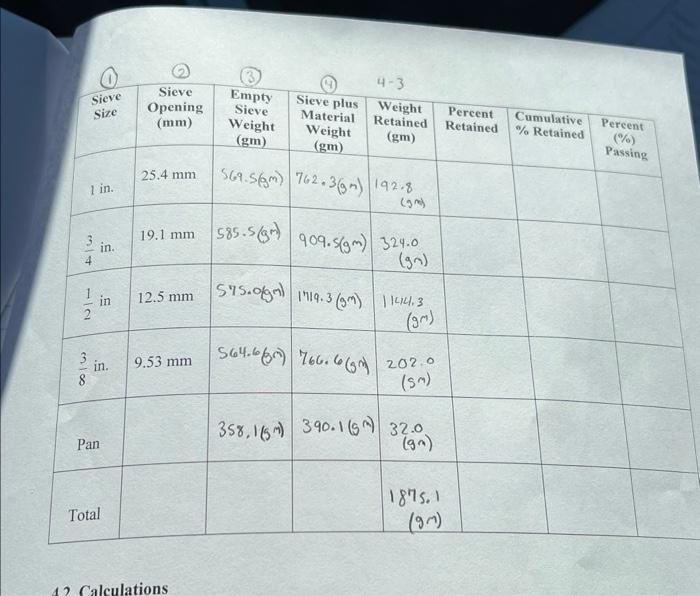 ① ② ③ ④ 4-3
Sieve Size
Sieve Opening (mm)
Empty Sieve Weight (gm)
Sieve plus Material Weight (gm)
Weight Retained (gm)
Percent Retained
Cumulative % Retained
Percent (%) Passing
1 in. 25.4 mm 569.5(gm) 762.3(gm) 192.8 (gm)
3/4 in. 19.1 mm 585.5(gm) 909.5(gm) 324.0 (gm)
1/2 in 12.5 mm 575.0(gm) 1719.3(gm) 1144.3 (gm)
3/8 in. 9.53 mm 564.6(gm) 766.6(gm) 202.0 (gm)
Pan 358.1(gm) 390.1(gm) 32.0 (gm)
Total 1875.1 (gm)
4.2 Calculations